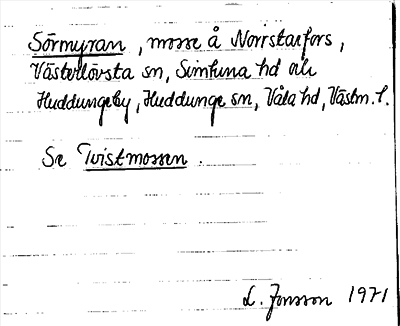 Sörmyran, mosse å Norrstarfors,
Västerlövsta sn, Simtuna hd och
Huddungeby, Huddunge sn, Våla hd, Västm. l.
Se Tvistmossen.
L. Jonsson 1971